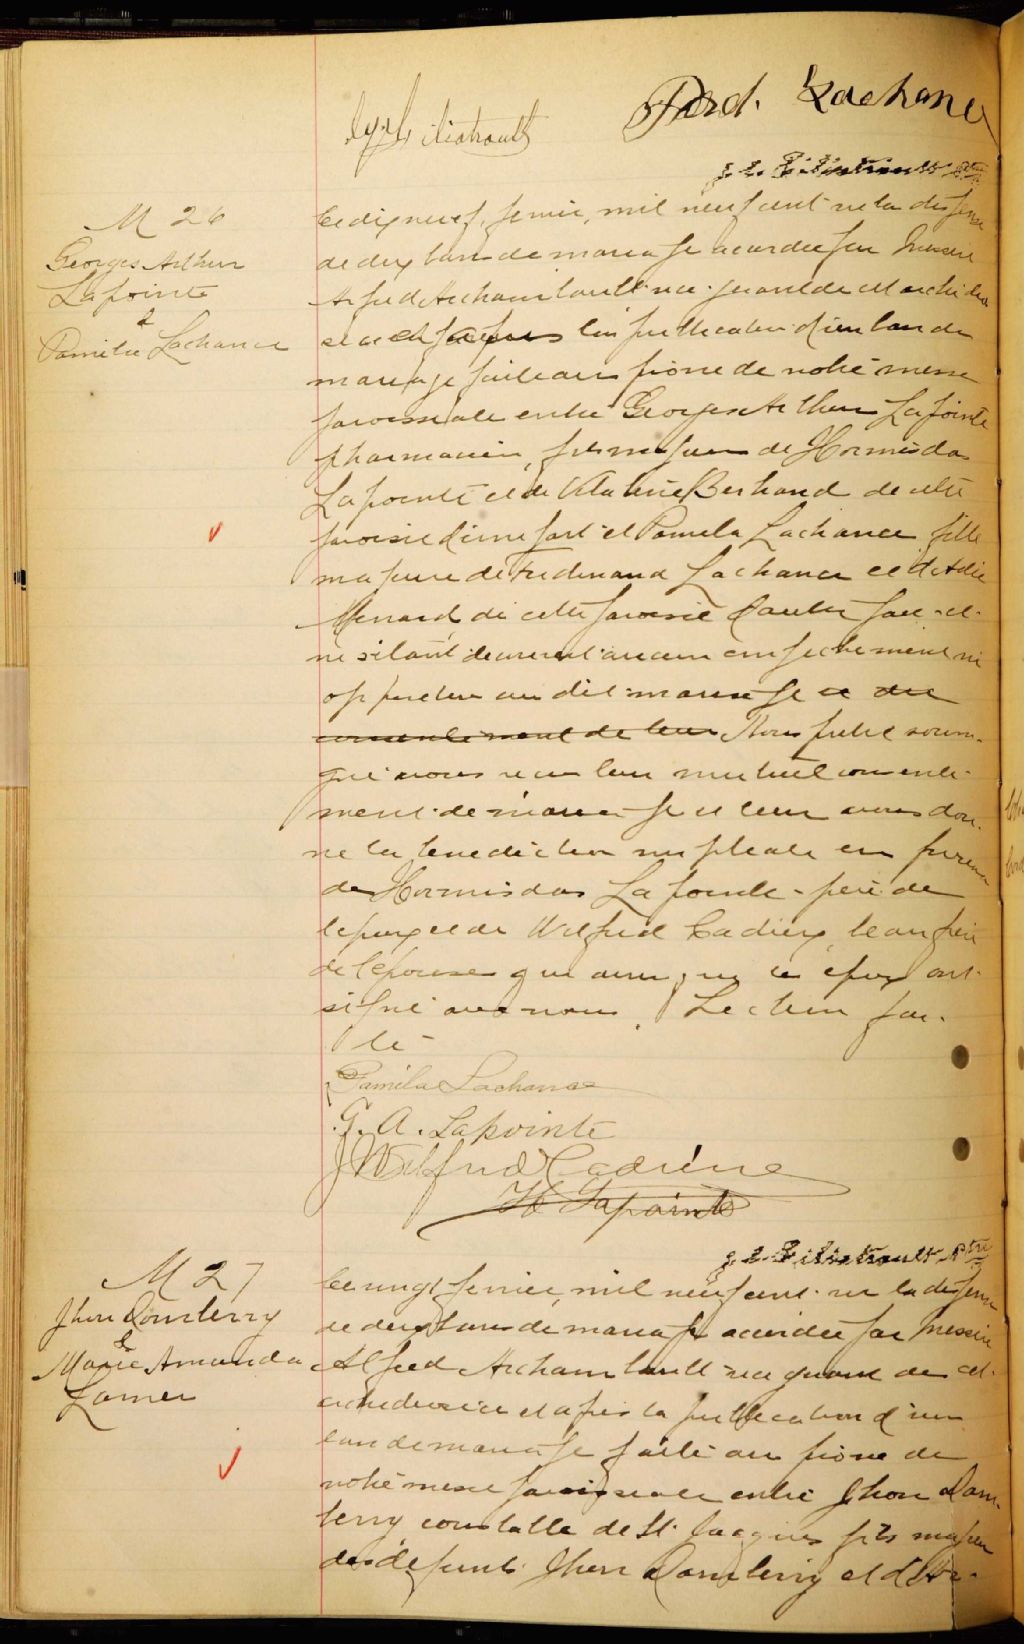 Ferd. Lachance
J. E. Filiatrault Ptre
M 26
Georges Arthur
Lapointe
&
Pamila Lachance
Le dix neuf fevrier, mil neuf cent vu la dispense
de deux bans de mariage accordée par Messire
Alfred Archambault vic. general de cet archidio
et après la publication d'un ban de
mariage faite au prone de notre messe
paroissiale entre Georges Arthur Lapointe
pharmacien, fils majeur de Hormisdas
Lapointe et de Bertrand de cette
paroisse d'une part et Pamela Lachance fille
majeure de Ferdinand Lachance et d'Adée
Menard de cette paroisse d'autre part et
ne s'étant decouvert aucun empechement ni
opposition au dit mariage et du
consentement de leur Nous pretre sous-
gné avons recu leur mutuel consente-
ment de mariage et leur avons don-
né la benediction nuptiale en presence
de Hormisdas Lapointe père de
l'epoux et de Wilfrid Cadieux beaufrère
de l'épouse qui ainsi que les epoux ont
signé avec nous. Lecture fai-
te
Pamila Lachance
G. A. Lapointe
J Wilfrid Cadieux
H Lapointe
J. E. Filiatrault Ptre
M 27
Jhon Dounberry
&
Marie Amanda
Lamer
Le vingt fevrier, mil neuf cent vu la dispense
de deux bans de mariage accordée par Messire
Alfred Archambault vic general de cet
archidiocese et après la publication d'un
ban de mariage faite au prone de
notre messe paroissiale entre Jhon Doun-
berry constable de St. Jacques fils majeur
de défunt Jhon Dounberry et